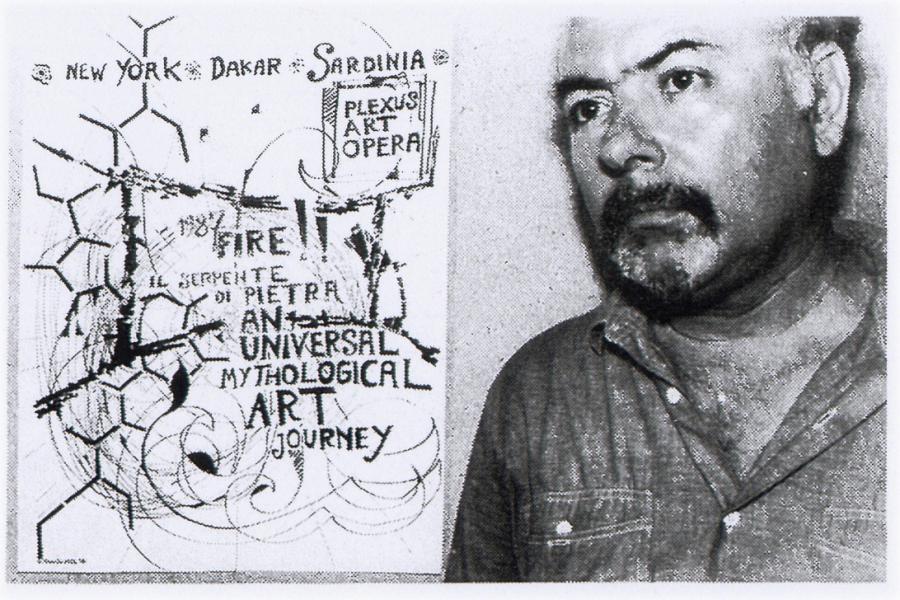 NEW YORK DAKAR SARDINIA
PLEXUS
ART
OPERA
1987
FIRE!!
IL SERPENTE
DI PIETRA
AN
UNIVERSAL
MYTHOLOGICAL
ART
JOURNEY